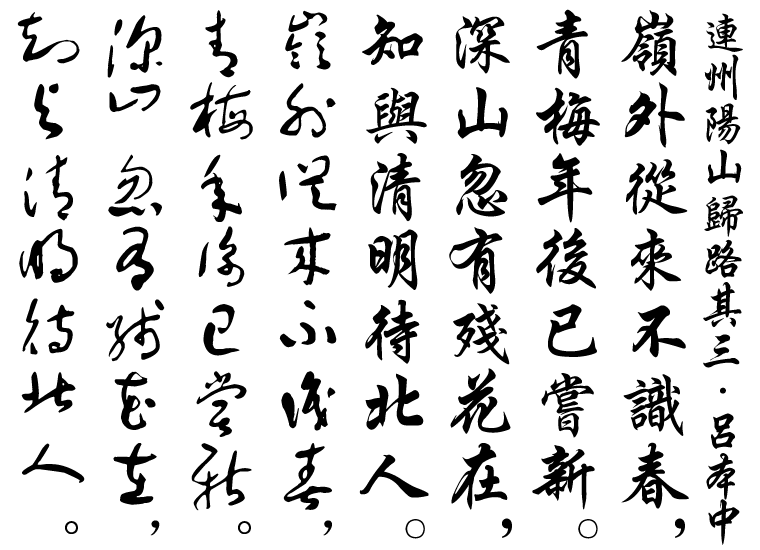 連州陽山歸路其三·呂本中
嶺外從來不識春，
青梅年後已嘗新。
深山忽有殘花在，
知與清明待北人。
嶺外從來不識春，
青梅年後已嘗新。
深山忽有殘花在，
知與清明待北人。